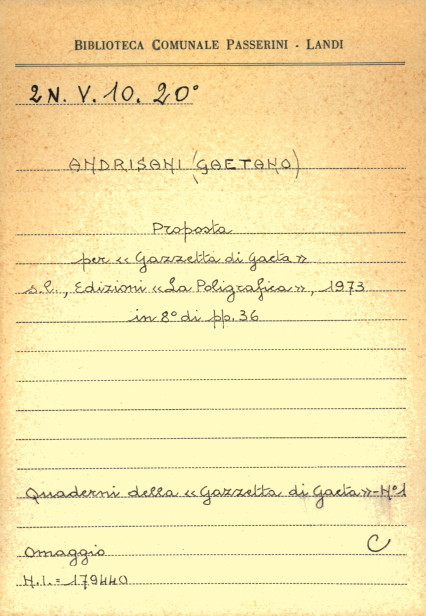 BIBLIOTECA COMUNALE PASSERINI - LANDI
2N. V. 10. 20°
ANDRISANI (GAETANO)
Proposta
per « Gazzetta di Gaeta »
s.l., Edizioni «La Poligrafica», 1973
in 8° di pp. 36
Quaderni della «Gazzetta di Gaeta»-N°1
Omaggio C
N.I.= 179440